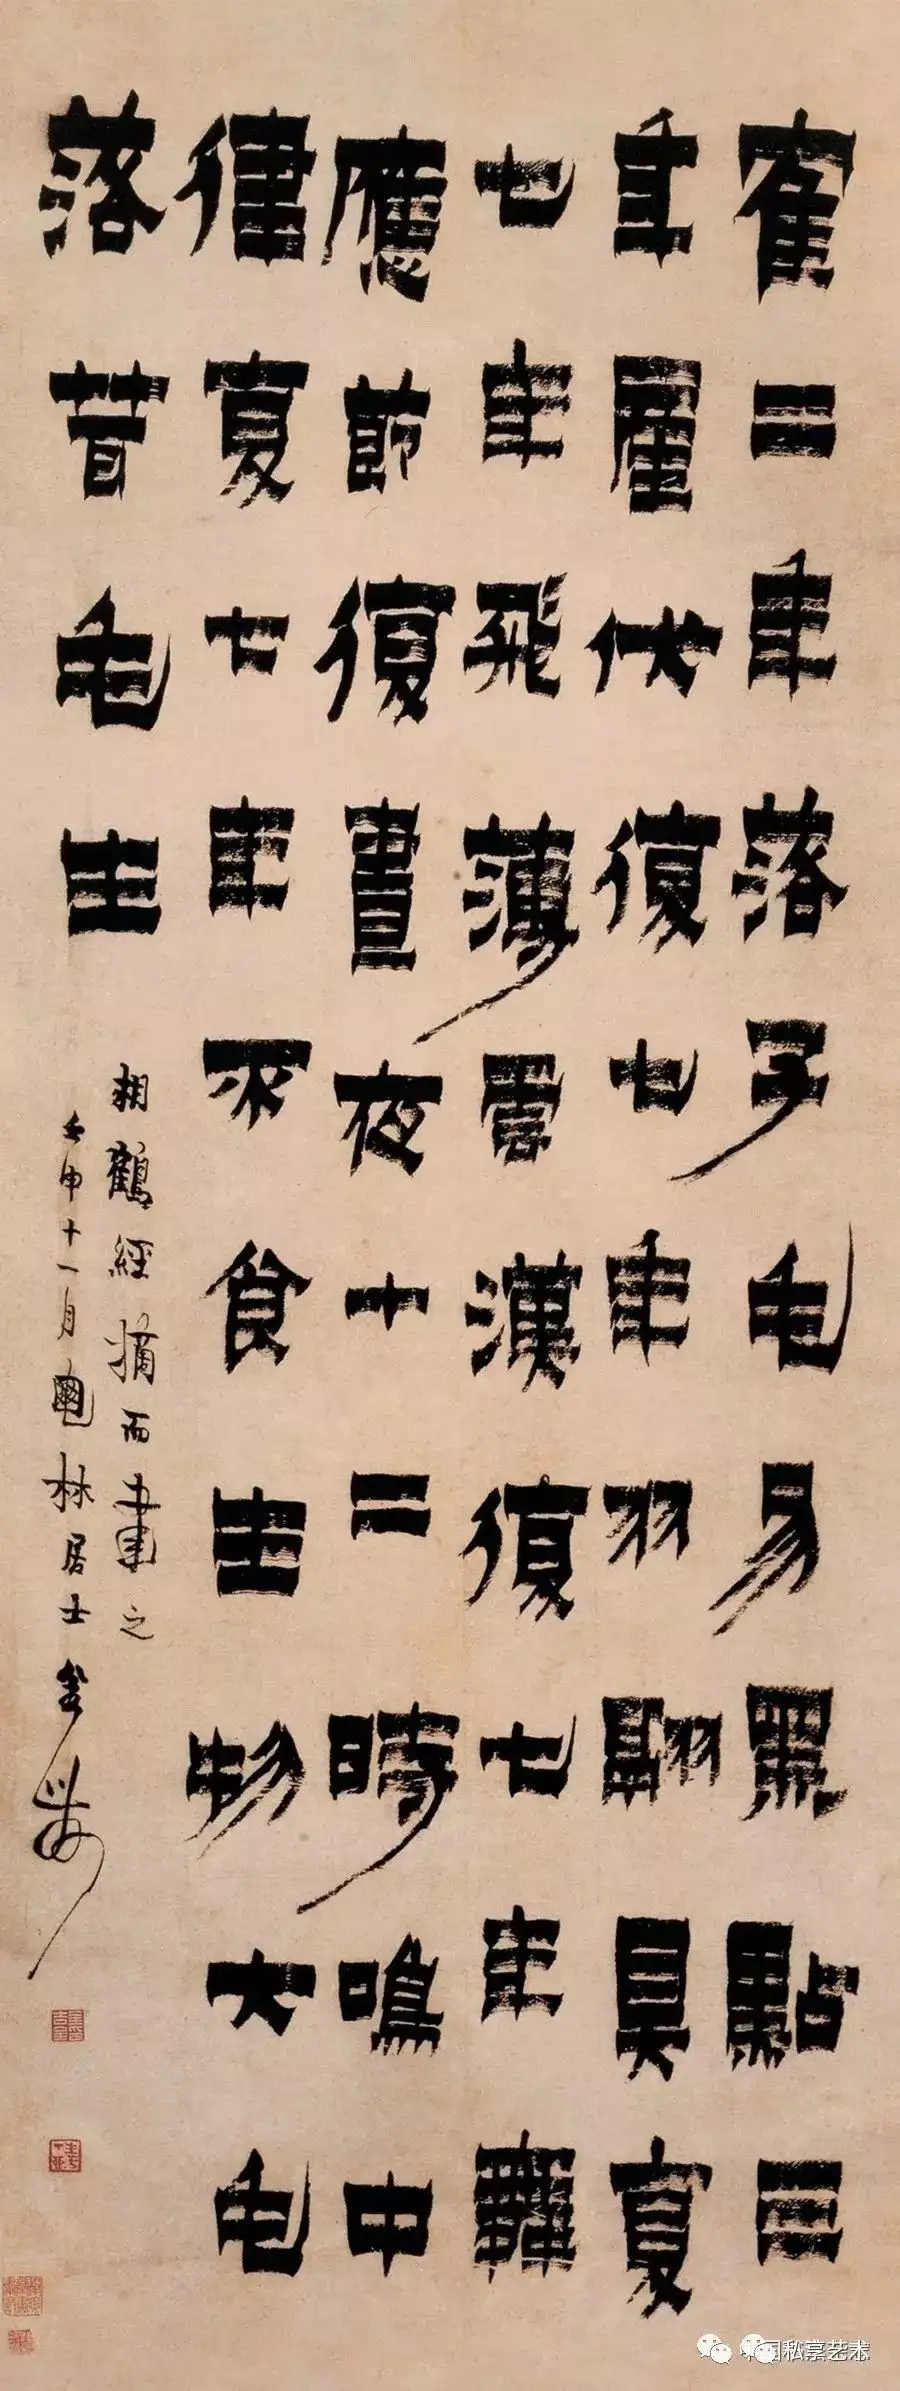 隺二年落子毛易黑點三
年產伏復七年羽翮具复
七年飛薄雲漢復七年舞
應節復晝夜十二時鳴中
律复七年不食生物大毛
落茸毛生
相鶴經摘而書之
壬申十一月林居士金農
国私享艺术